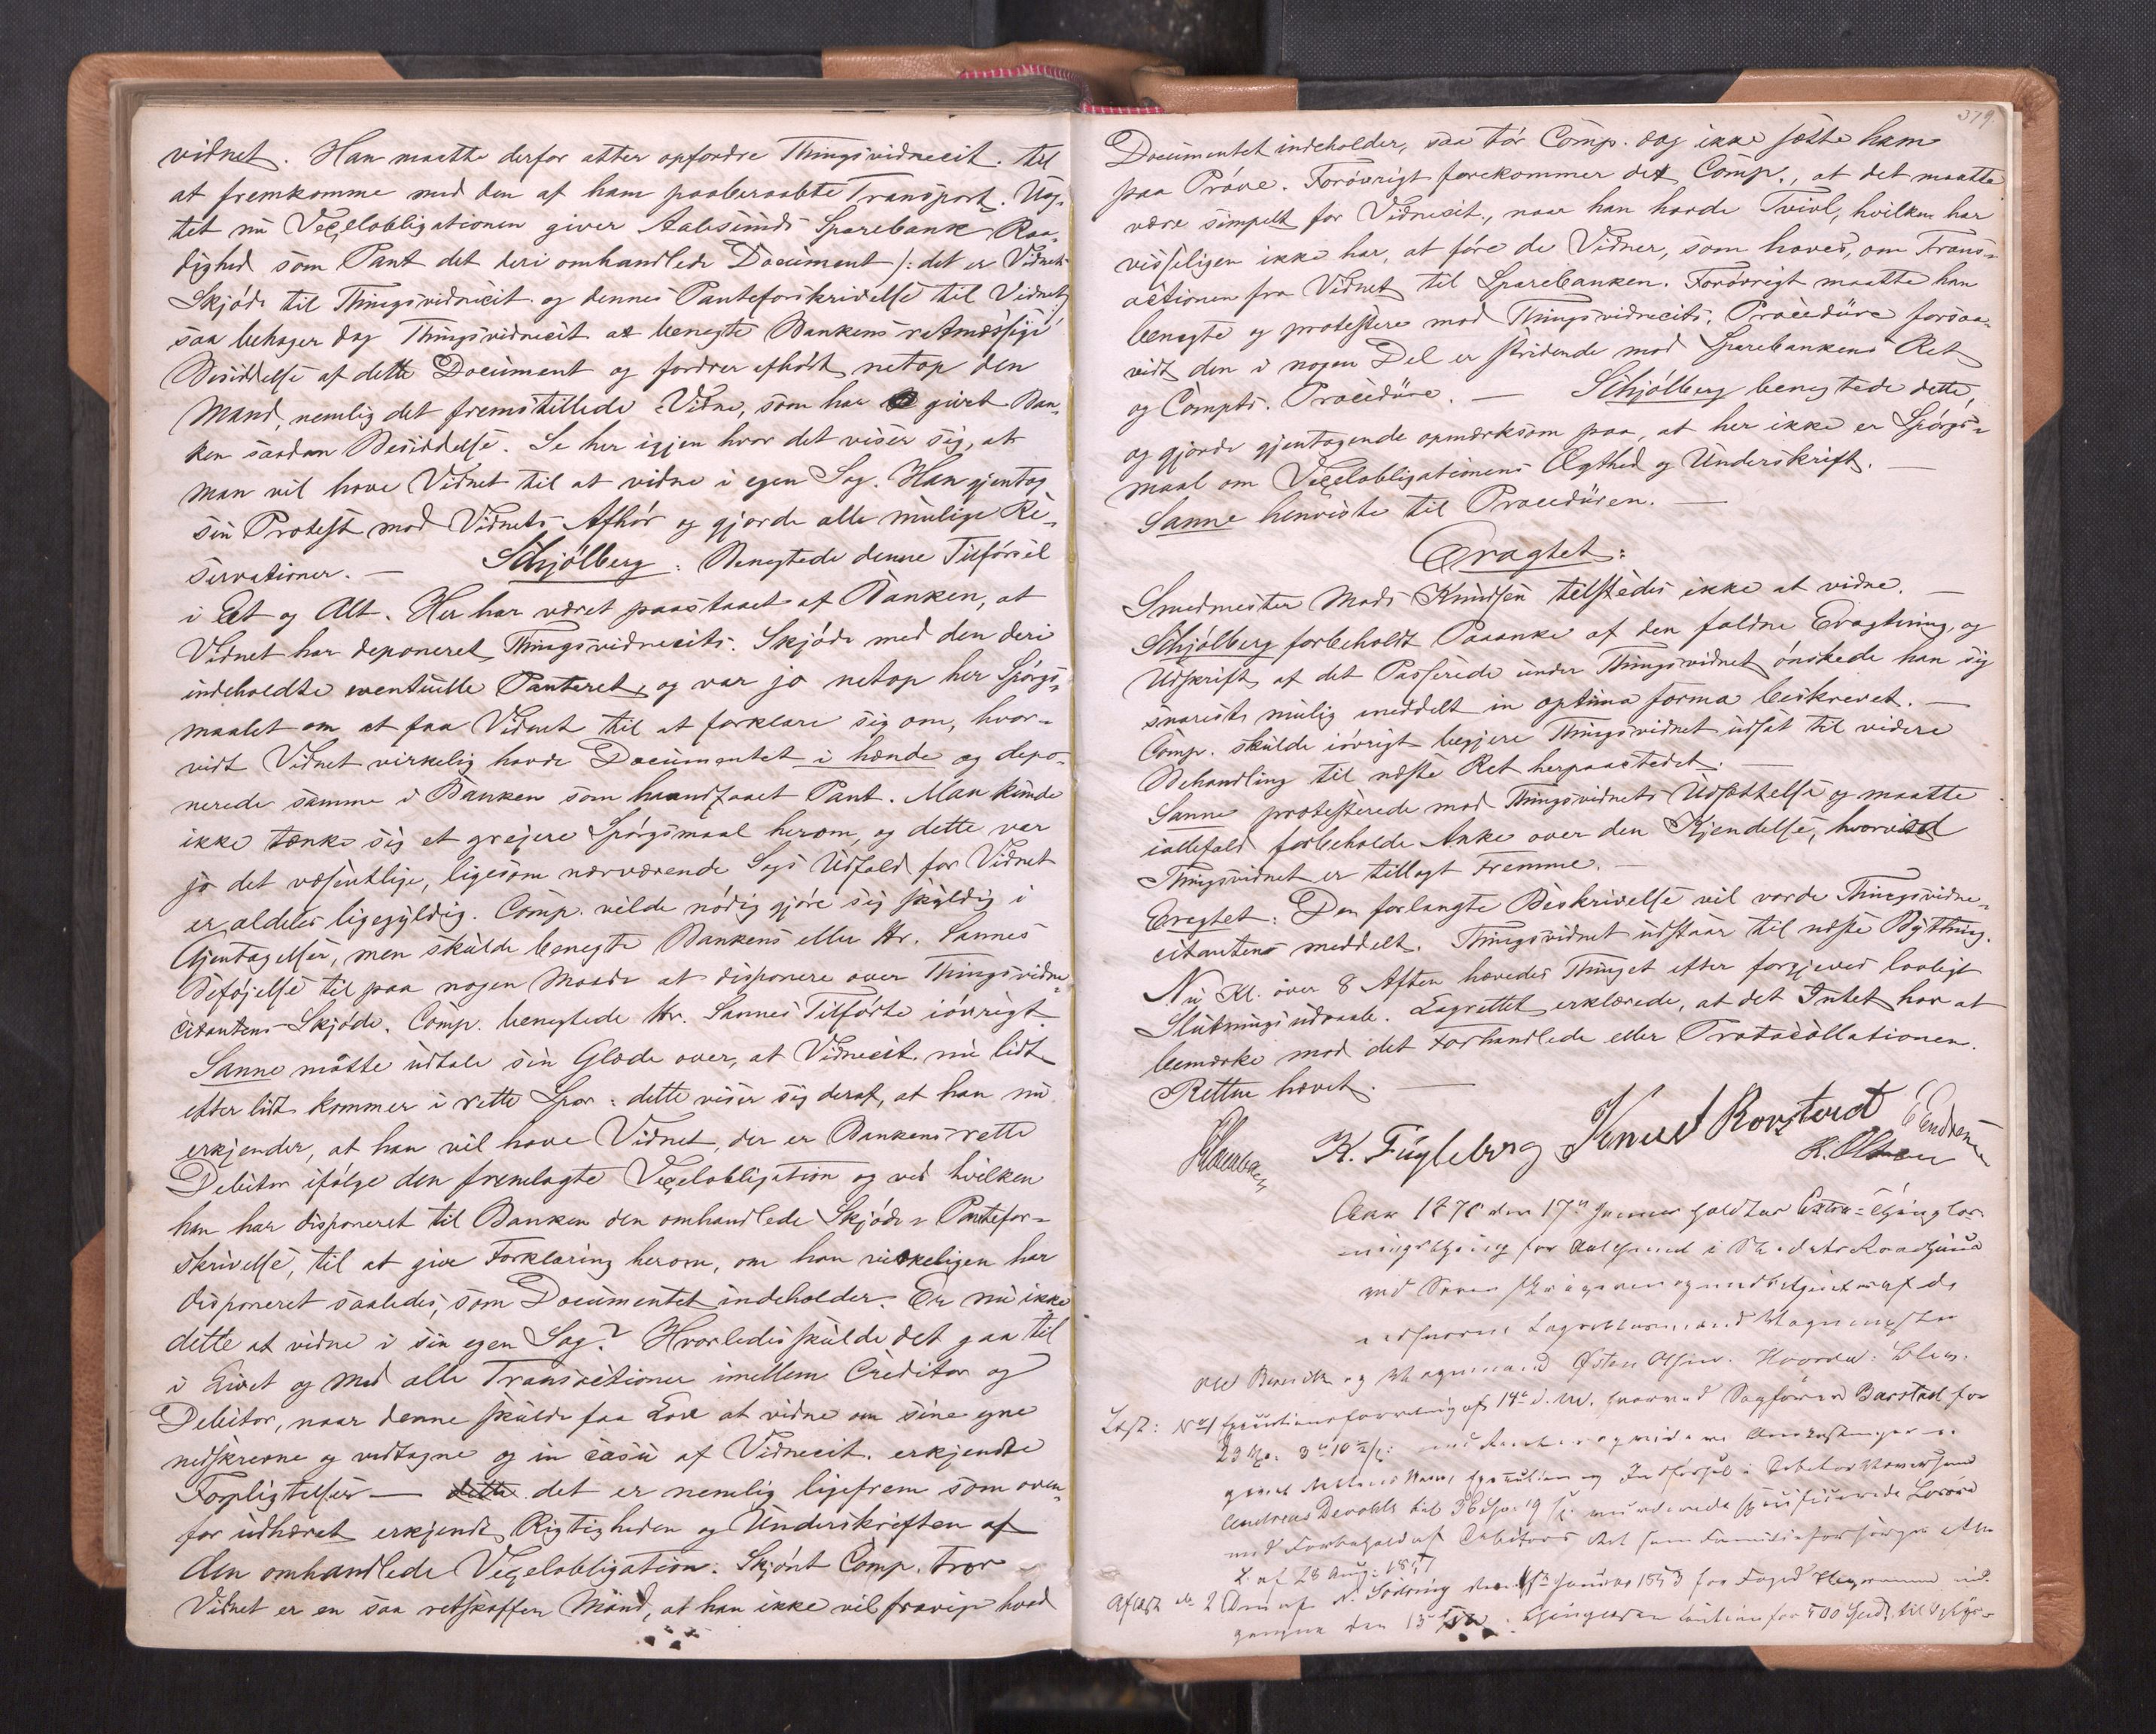 vidnet. Han maatte derfor atter opfordre Thingsvidnecit. til
at fremkomme med den af ham paaberaabte Transport. Uag-
tet nu Vexelobligationen giver Aalesunds Sparebank Raa-
dighed som Pant det deri omhandlede Document ): det er Vidnets
Skjöde til Thingsvidnecit. og dennes Panteforskrivelse til Vidnet,
saa behager dog Thingsvidnecit. at benegte Bankens retmæssige
Besiddelse af dette Document og fordrer afhört netop den
Mand, nemlig det fremstillede Vidne, som har givet Ban-
ken saadan Besiddelse. Se her igjen hvor det viser sig, at
man vil have Vidnet til at vidne i egen Sag. Han gjentog
sin Protest mod Vidnets Afhör og gjorde alle mulige Re-
servationer. — Schjölberg: Benegtede denne Tilförsel
i Et og Alt. Her har været paastaaet af Banken, at
Vidnet har deponeret Thingsvidnecits. Skjöde med den deri
indeholdte eventuelle Panteret, og var jo netop her Spörgs-
maalet om at faa Vidnet til at forklare sig om, hvor-
vidt Vidnet virkelig havde Documentet i hænde og depo-
nerede samme i Banken som haandfaaet Pant. Man kunde
ikke tænke sig et grejere Spörgsmaal herom, og dette var
jo det væsentlige, ligesom nærværende Sags Udfald for Vidnet
er aldeles ligegyldig. Comp. vilde nödig gjöre sig skyldig i
Gjentagelser, men skulde benegte Bankens eller Hr. Sannes
Beföjelse til paa nogen Maade at disponere over Thingsvidne-
citantens Skjöde. Comp. benegtede Hr. Sannes Tilförte iövrigt.
Sanne måtte udtale sin Glæde over, at Vidnecit. nu lidt
efter lidt kommer i rette Spor: dette viser sig deraf, at han nu
erkjender, at han vil have Vidnet, der er Bankens rette
Debitor ifölge den fremlagte Vexelobligation og ved hvilken
han har disponeret til Banken den omhandlede Skjöde - Pantefor-
skrivelse, til at give Forklaring herom, om han virkeligen har
disponeret saaledes, som Documentet indeholder. Er nu ikke
dette at vidne i sin egen Sag? Hvorledes skulde det gaa til
i Livet og med alle Transactioner imellem Creditor og
Debitor, naar denne skulde faa Lov at vidne om sine egne
nedskrevne og vedtagne og in casu af Vidnecit. erkjendte
Forpligtelser — dette det er nemlig ligefrem som oven-
for udhævet erkjendt Rigtigheden og Underskriften af
den omhandlede Vexelobligation. Skjönt Comp. tror
Vidnet er en saa retskaffen Mand, at han ikke vil fravige hvad
379
Documentet indeholder, saa tör Comp. dog ikke sætte ham
paa Pröve. Forövrigt forekommer det Comp., at det maatte
være simpelt for Vidnecit., naar han havde Tvivl, hvilken han
visseligen ikke har, at före de Vidner, som haves, om Trans-
actionen fra Vidnet til Sparebanken. Forövrigt maatte han
benegte og protestere mod Thingsvidnecits. Procedüre forsaa-
vidt den i nogen Del er stridende mod Sparebankens Ret
og Compts. Procedüre. — Schjölberg benegtede dette,
og gjorde gjentagende opmærksom paa, at her ikke er Spörgs-
maal om Vexelobligationens Ægthed og Underskrift. —
Sanne henviste til Procedüren. —
Eragtet:
Smedmester Mads Knudsen tilstedes ikke at vidne. —
Schjölberg forbeholdt Paaanke af den faldne Eragtning, og
Udskrift af det Passerede under Thingsvidnet önskede han sig
snarest mulig meddelt in optima forma beskrevet. —
Comp. skulde iövrigt begjere Thingsvidnet udsat til videre
Behandling til næste Ret herpaastedet. —
Sanne protesterede mod Thingsvidnets Udsættelse og maatte
iallefald forbeholde Anke over den Kjendelse, hvorved
Thingsvidnet er tillagt Fremme. —
Eragtet: Den forlangte Beskrivelse vil vorde Thingsvidne-
citantens meddelt. Thingsvidnet udstaar til næste Bything.
Nu Kl. over 8 Aften hævedes Thinget efter forgjeves lovligt
Slutningsudraab. Lagrettet erklærede, at det Intet har at
bemærke mod det Forhandlede eller Protocollationen.
Retten hævet. —
K. Fügleberg Knud Rorstad E Endresen
H. Olsen
Aar 1878 den 17de Januar holdtes Extra-
for Aalesund i Stedets Raadhuus
og med af de
edsvorne Lagrettesmænd Vognmester
Ole og Vognmand Østen Olsen. Hvorda: blev
Læst: No 1 Executionsforretning af 14de d. M. hvorved Sagförer Barstad for
29
Execution og Indförsel i Debitor
Andreas Devold
med Forbehold af Debitors Ret som Familieforsörger efter
L. af 28 Aug: 1851
Aflæst No 2 af N. Södring Januar 1853 for Foged
den 13de for 500 Spd. til